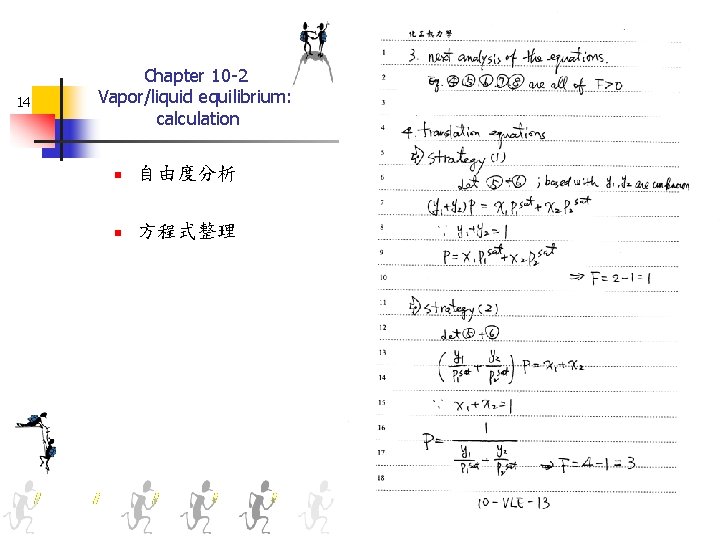 14
Chapter 10-2
Vapor/liquid equilibrium:
calculation
自由度分析
方程式整理
化工熱力學
1 3. next analysis of the equations.
2 eq. ④⑤⑥⑦⑧ are all of F>0
3
4 4. translation equations
5 strategy (1)
6 let ⑤+⑥ ; based with y₁, y₂ are unknown
7 (y₁+y₂)P = x₁P₁ˢᵃᵗ + x₂P₂ˢᵃᵗ
8 ∵ y₁+y₂=1
9 P = x₁P₁ˢᵃᵗ + x₂P₂ˢᵃᵗ
10 ⇒ F=2-1=1
11 strategy (2)
12 let ⑤+⑥
13 (y₁/P₁ˢᵃᵗ + y₂/P₂ˢᵃᵗ) P = x₁+x₂
14
15 ∵ x₁+x₂=1
16 P = 1 / (y₁/P₁ˢᵃᵗ + y₂/P₂ˢᵃᵗ)
17 ⇒ F=4-1=3
18
10-VLE-13